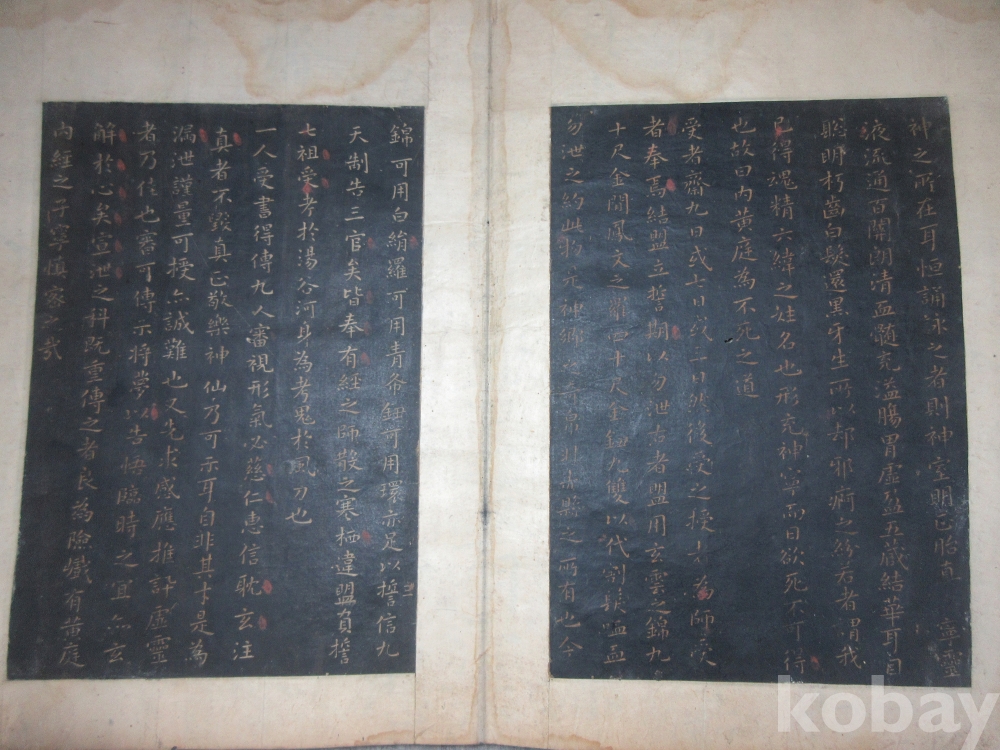 神之所在耳恒誦詠之者則神室明正胎真 靈
液流通百關朗清血髓充溢腸胃虛盈五藏結華耳目
聰明朽齒白髮還黑牙生所以却邪痾之紛若者謂我
已得魂精六緯之姓名也形充神寧而曰欲死不可得
也故曰內黃庭為不死之道
受者齋九日或七日或 日然後受之授者為師受
者奉焉結盟立誓期以勿泄古者盟用玄雲之錦九
十尺金開鳳文之羅四十尺金鈕九雙以代割髮歃血
勿泄之約此物是神鄉之 帛 縣之所有也今
錦可用白絹羅可用青布鈕可用環亦足以誓信九
天制告三官矣皆奉有經之師散之寒栖違盟負誓
七祖受考於湯谷河身為考鬼於風刀也
一人受書得傳九人審視形氣必慈仁惠信耽玄注
真者不毀真正敬樂神仙乃可示耳自非其士是為
漏泄謹量可授亦誠難也又先求感應推訴虛靈
者乃佳也審可傳示將夢以告悟臨時之宜亦玄
解於心矣宣泄之科既重傳之者良為險巇有黃庭
內經之子寧慎密之哉
kobay